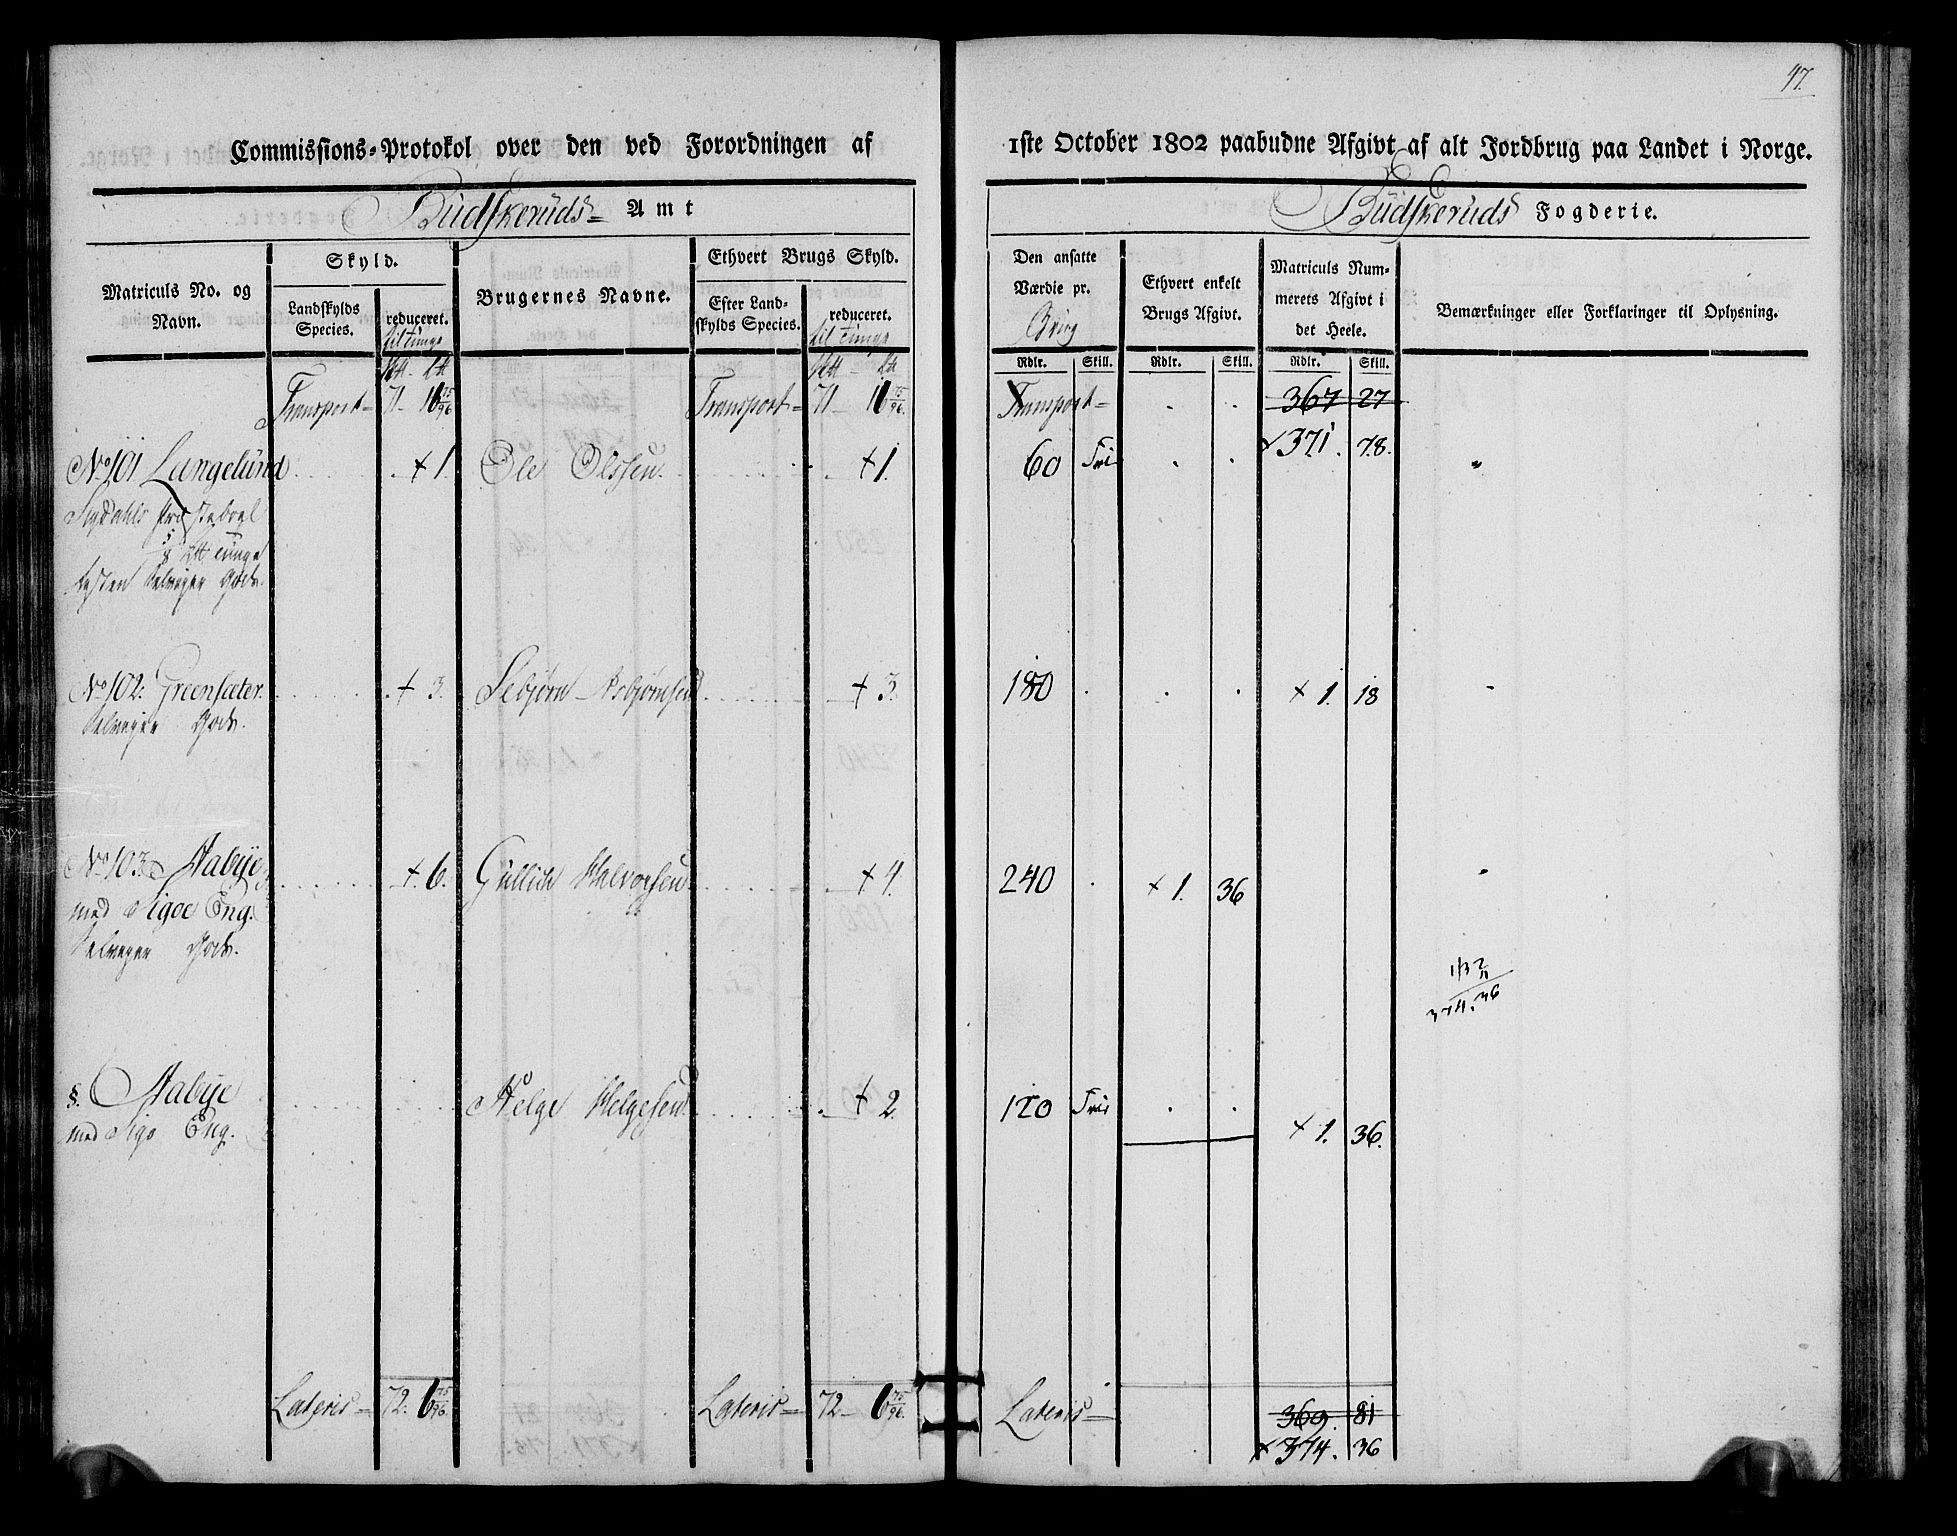 47.
Commissions-Protokol over den ved Forordningen af 1ste October 1802 paabudne Afgivt af alt Jordbrug paa Landet i Norge.
Budskeruds Amt
Budskeruds Fogderie.
Matriculs No. og Navn.
Skyld.
Landskylds Species.
reduceret.
til Tunge
Brugernes Navne.
Ethvert Brugs Skyld.
Efter Landskylds Species.
reduceret.
til Tunge
Den ansatte Værdie pr.
Brug
Rdlr. Skill.
Ethvert enkelt Brugs Afgivt.
Rdlr. Skill.
Matriculs Nummerets Afgivt i det Heele.
Rdlr. Skill.
Bemærkninger eller Forklaringer til Oplysning.
Transport 71 16 75/96 Transport 71 16 75/96. Transport 367 27
+ 371. 78.
No 101 Langelund + 1. Ole Olssen + 1. 60 Frie
Sigdahls Præsteboel
Tunge
Resten Selveyer Gods.
No 102. Greensæter + 3. Asbjørnsen + 3. 180 + 1. 18
Selveyer Gods.
No 103. Aabye + 6. Gullich Halvorsen + 4. 240 + 1. 36
med Sigoe Eng.
Selveyer Gods.
374. 36
§. Aabye Helge Helgesen + 2. 120 Frie + 1. 36.
med Sigo Eng.
Lateris 72. 6 75/96. Lateris 72 6 75/96. Lateris 369. 81
+ 374. 36